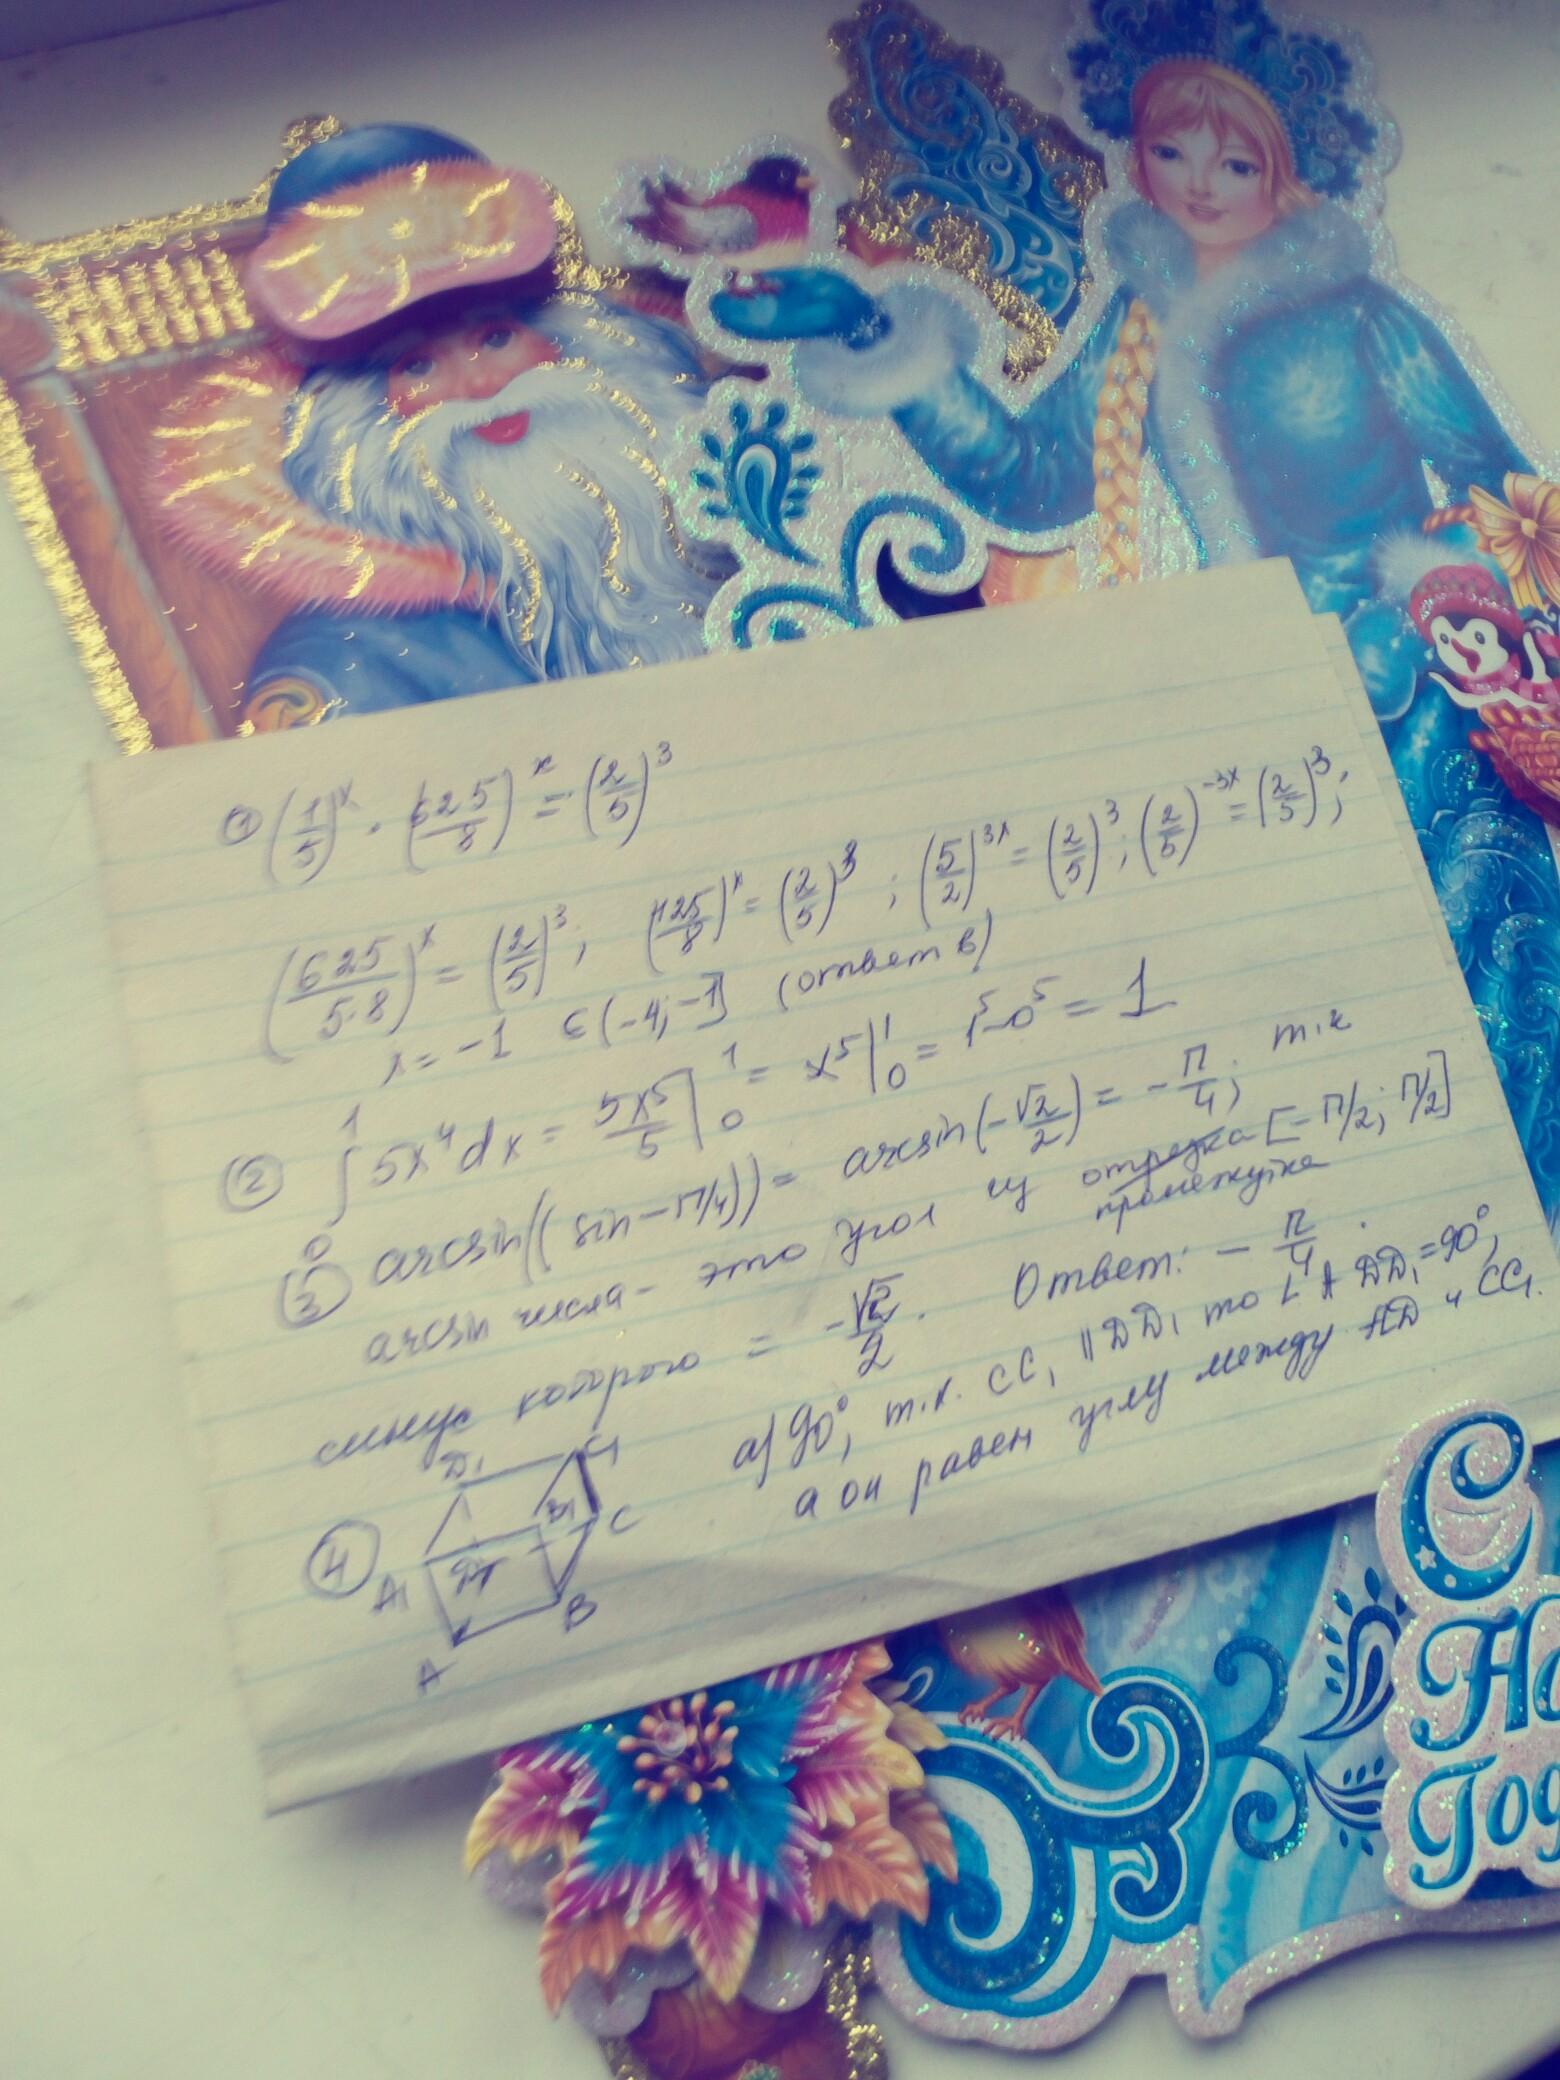 ① (1/5)^x · (625/8)^x = (2/5)^3
(625/5·8)^x = (2/5)^3; (125/8)^x = (2/5)^3; (5/2)^3x = (2/5)^3; (2/5)^-3x = (2/5)^3;
x = -1 ∈ (-4; -1] (ответ в)
② ∫₀¹ 5x^4 dx = 5x^5/5 |₀¹ = x^5 |₀¹ = 1^5 - 0^5 = 1
③ arcsin((sin - π/4)) = arcsin(-√2/2) = -π/4; т.к
arcsin числа - это угол из отрезка [-π/2; π/2]
промежутка
синус которого = -√2/2. Ответ: - π/4.
④ а) 90°, т.к. CC₁ || DD₁ то ∠ADD₁ = 90°,
а он равен углу между AD и CC₁.
D₁ C₁
A₁ B₁
C
B
A
С
Но
Год